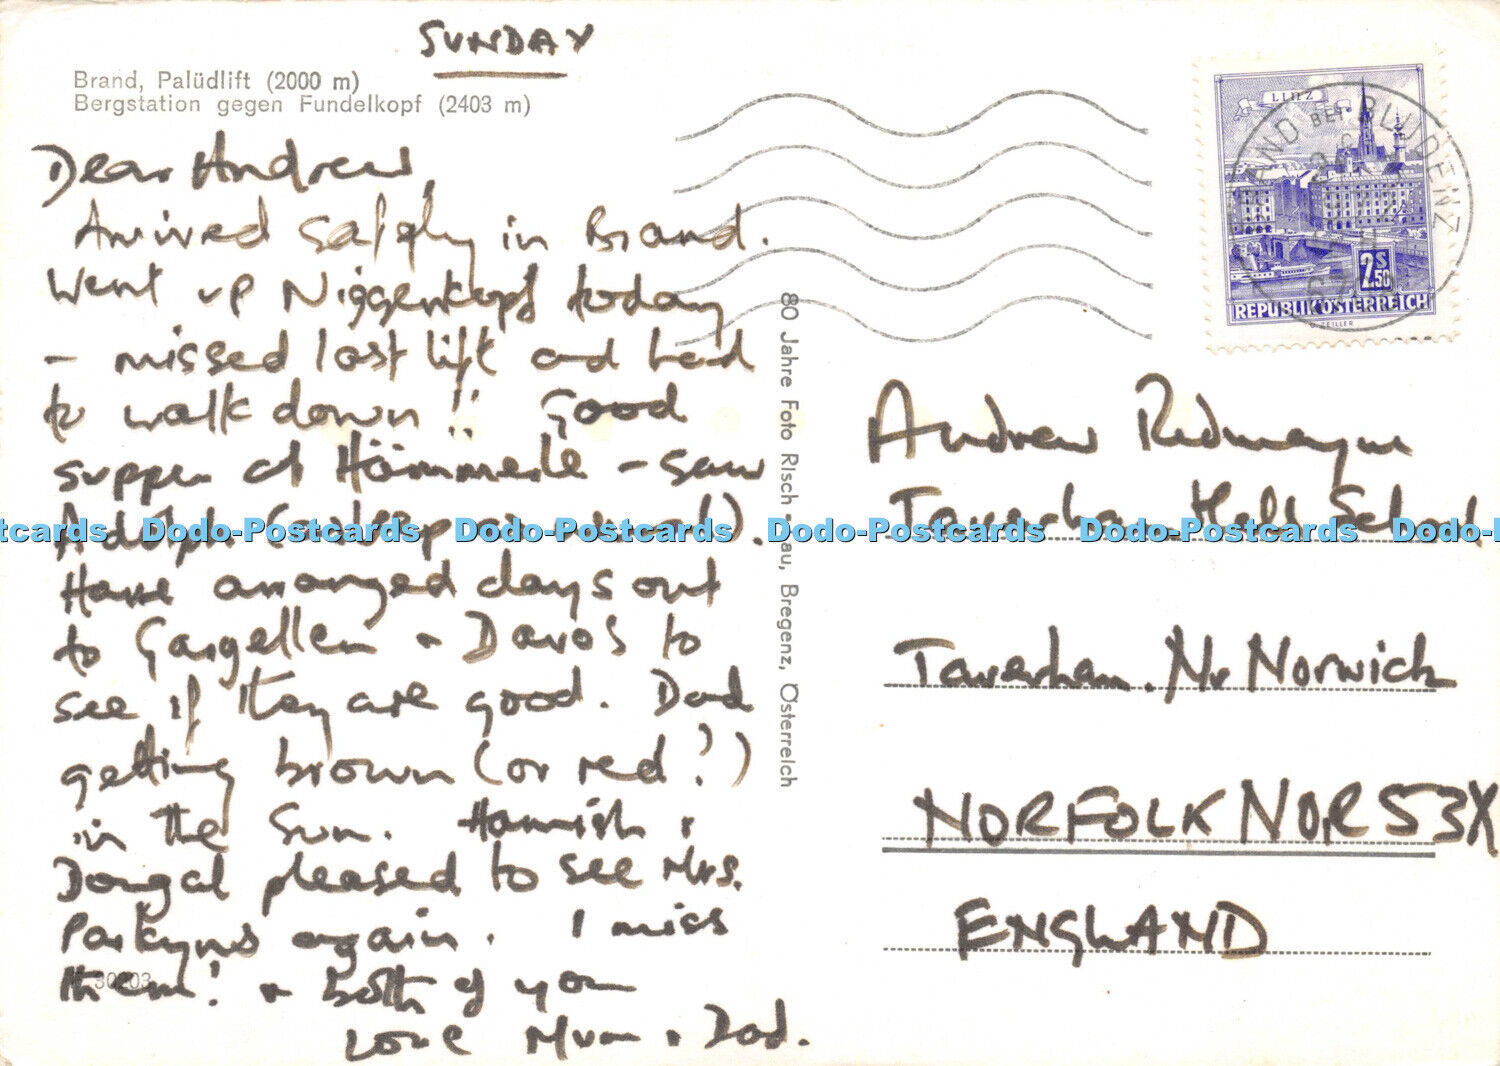 SUNDAY
Brand, Palüdlift (2000 m)
Bergstation gegen Fundelkopf (2403 m)
Dear Andrew,
Arrived safely in Brand.
Went up Niggenkopf today
- missed last lift and had
to walk down!! Good
supper at Hämmerle - saw
Adolph
Have arranged days out
to Gargellen & Davos to
see if they are good. Dad
getting brown (or red?)
in the Sun. Hamish &
Dougal pleased to see Mrs.
Parkyns again. I miss
them! & both of you
Love Mum & Dad.
30203
80 Jahre Foto Risch-Lau, Bregenz, Österreich
LINZ
2S.50
REPUBLIK ÖSTERREICH
BRAND BEI BLUDENZ
Andrew Redmayne
Taverham Hall School,
Taverham. Nr Norwich
NORFOLK NOR 53X
ENGLAND
Dodo-Postcards Dodo-Postcards Dodo-Postcards Dodo-Postcards